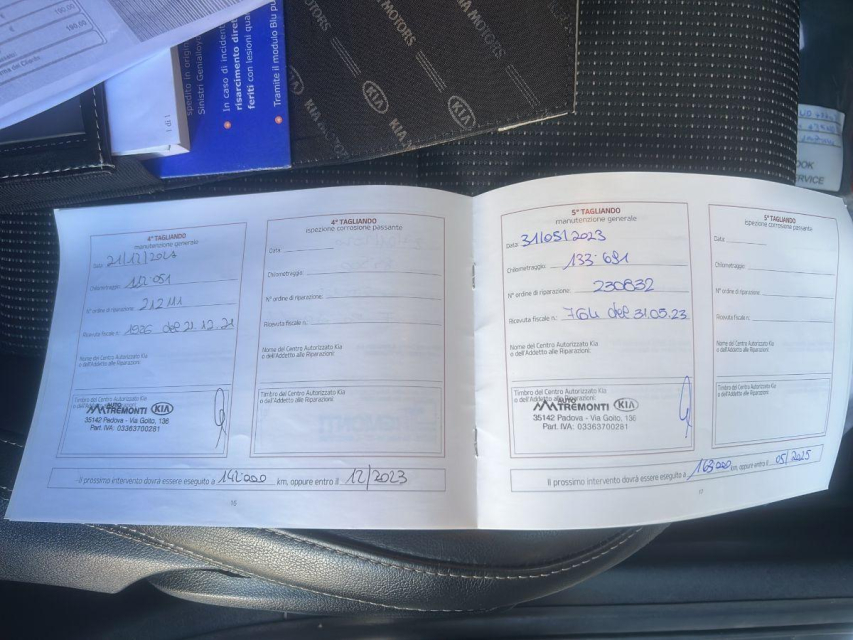 MOTORS
KIA MOTORS
KIA
KIA
190,00
190,00
1 di 1
Sinistri Geniallo
In caso di incident
risarcimento diret
feriti con lesioni qua
Tramite il modulo Blu p
OOK
RVICE
4° TAGLIANDO
manutenzione generale
Data
Chilometraggio
N° ordine di riparazione
Ricevuta fiscale n. 1926 del 21.12.21
Nome del Centro Autorizzato Kia
o dell'Addetto alle Riparazioni:
Timbro del Centro Autorizzato Kia
o dell'Addetto alle Riparazioni:
AUTO
TREMONTI KIA
35142 Padova - Via Goito, 136
Part. IVA: 03363700281
4° TAGLIANDO
ispezione corrosione passante
Data
Chilometraggio:
N° ordine di riparazione:
Ricevuta fiscale n.:
Nome del Centro Autorizzato Kia
o dell'Addetto alle Riparazioni:
Timbro del Centro Autorizzato Kia
o dell'Addetto alle Riparazioni:
Il prossimo intervento dovrà essere eseguito a 142.000 km, oppure entro il 12/2023
5° TAGLIANDO
manutenzione generale
Data: 31/05/2023
Chilometraggio: 133.691
N° ordine di riparazione: 230832
Ricevuta fiscale n.: 764 del 31.05.23
Nome del Centro Autorizzato Kia
o dell'Addetto alle Riparazioni:
Timbro del Centro Autorizzato Kia
o dell'Addetto alle Riparazioni:
AUTO
TREMONTI KIA
35142 Padova - Via Goito, 136
Part. IVA: 03363700281
5° TAGLIANDO
ispezione corrosione passante
Data
Chilometraggio:
N° ordine di riparazione:
Ricevuta fiscale n.:
Nome del Centro Autorizzato Kia
o dell'Addetto alle Riparazioni:
Timbro del Centro Autorizzato Kia
o dell'Addetto alle Riparazioni:
Il prossimo intervento dovrà essere eseguito a 163000 km, oppure entro il 05/2025